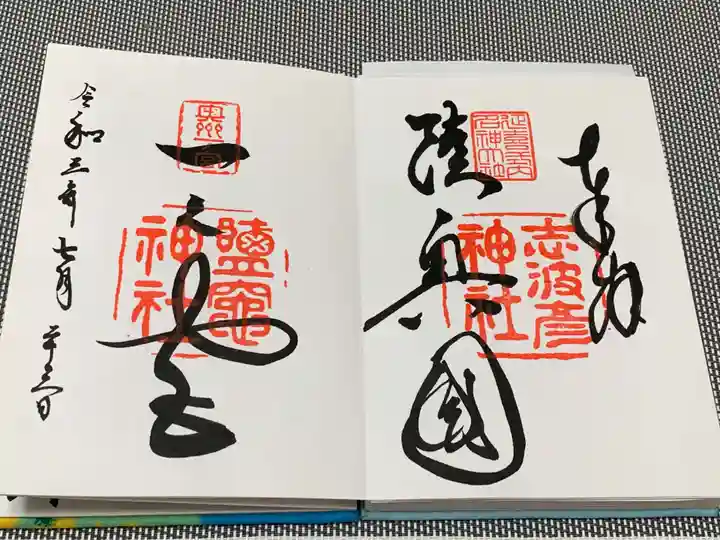 奉拝
陸奥國
延喜式内
名神大社
志波彦
神社
奥州
一宮
一之宮
鹽竈
神社
令和三年七月廿三日